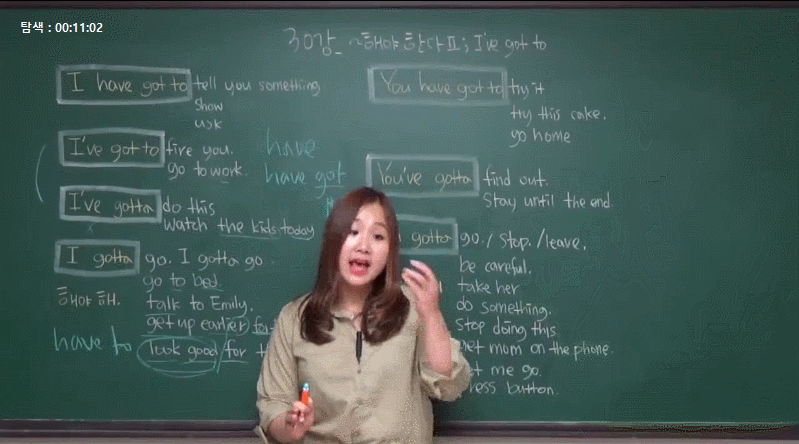 탐색 : 00:11:02
30강_ ~해야 한다 II ; I've got to
I have got to tell you something
show
ask
I've got to fire you.
go to work.
I've gotta do this
watch the kids today
I gotta go. I gotta go.
go to bed.
해야 해. talk to Emily.
get up earlier for
have to look good for
have
have got
You have got to try it
try this cake.
go home
You've gotta find out.
Stay until the end
gotta go. / stop. / leave.
be careful.
take her
do something.
stop doing this
mom on the phone.
me go.
button.